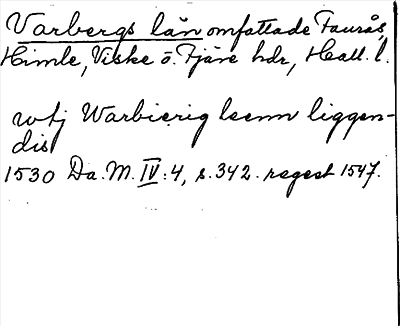 Varbergs län omfattade Faurås,
Himle, Viske o. Fjäre hdr, Hall. l.
wtj Warbierig leenn liggen-
dis
1530 Da. M. IV: 4, s. 342. regest 1547.